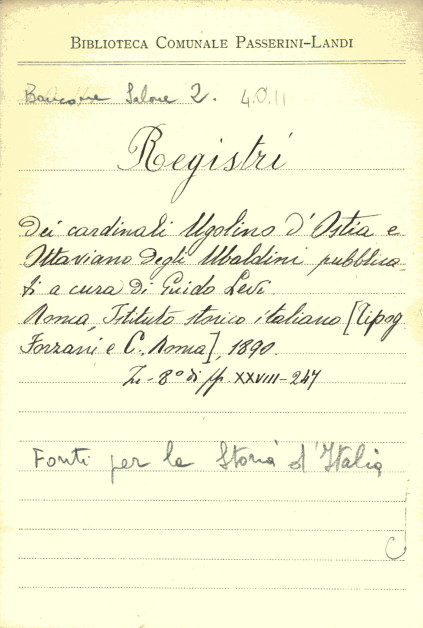 BIBLIOTECA COMUNALE PASSERINI-LANDI
Bancone Salone 2. 4.O.11
Registri
Dei cardinali Ugolino d'Ostia e
Ottaviano degli Ubaldini pubblica-
ti a cura di Guido Levi.
Roma, Istituto storico italiano [Tipog.
Forzani e C. Roma], 1890.
In-8° di pp. XXVIII-247
Fonti per la Storia d'Italia